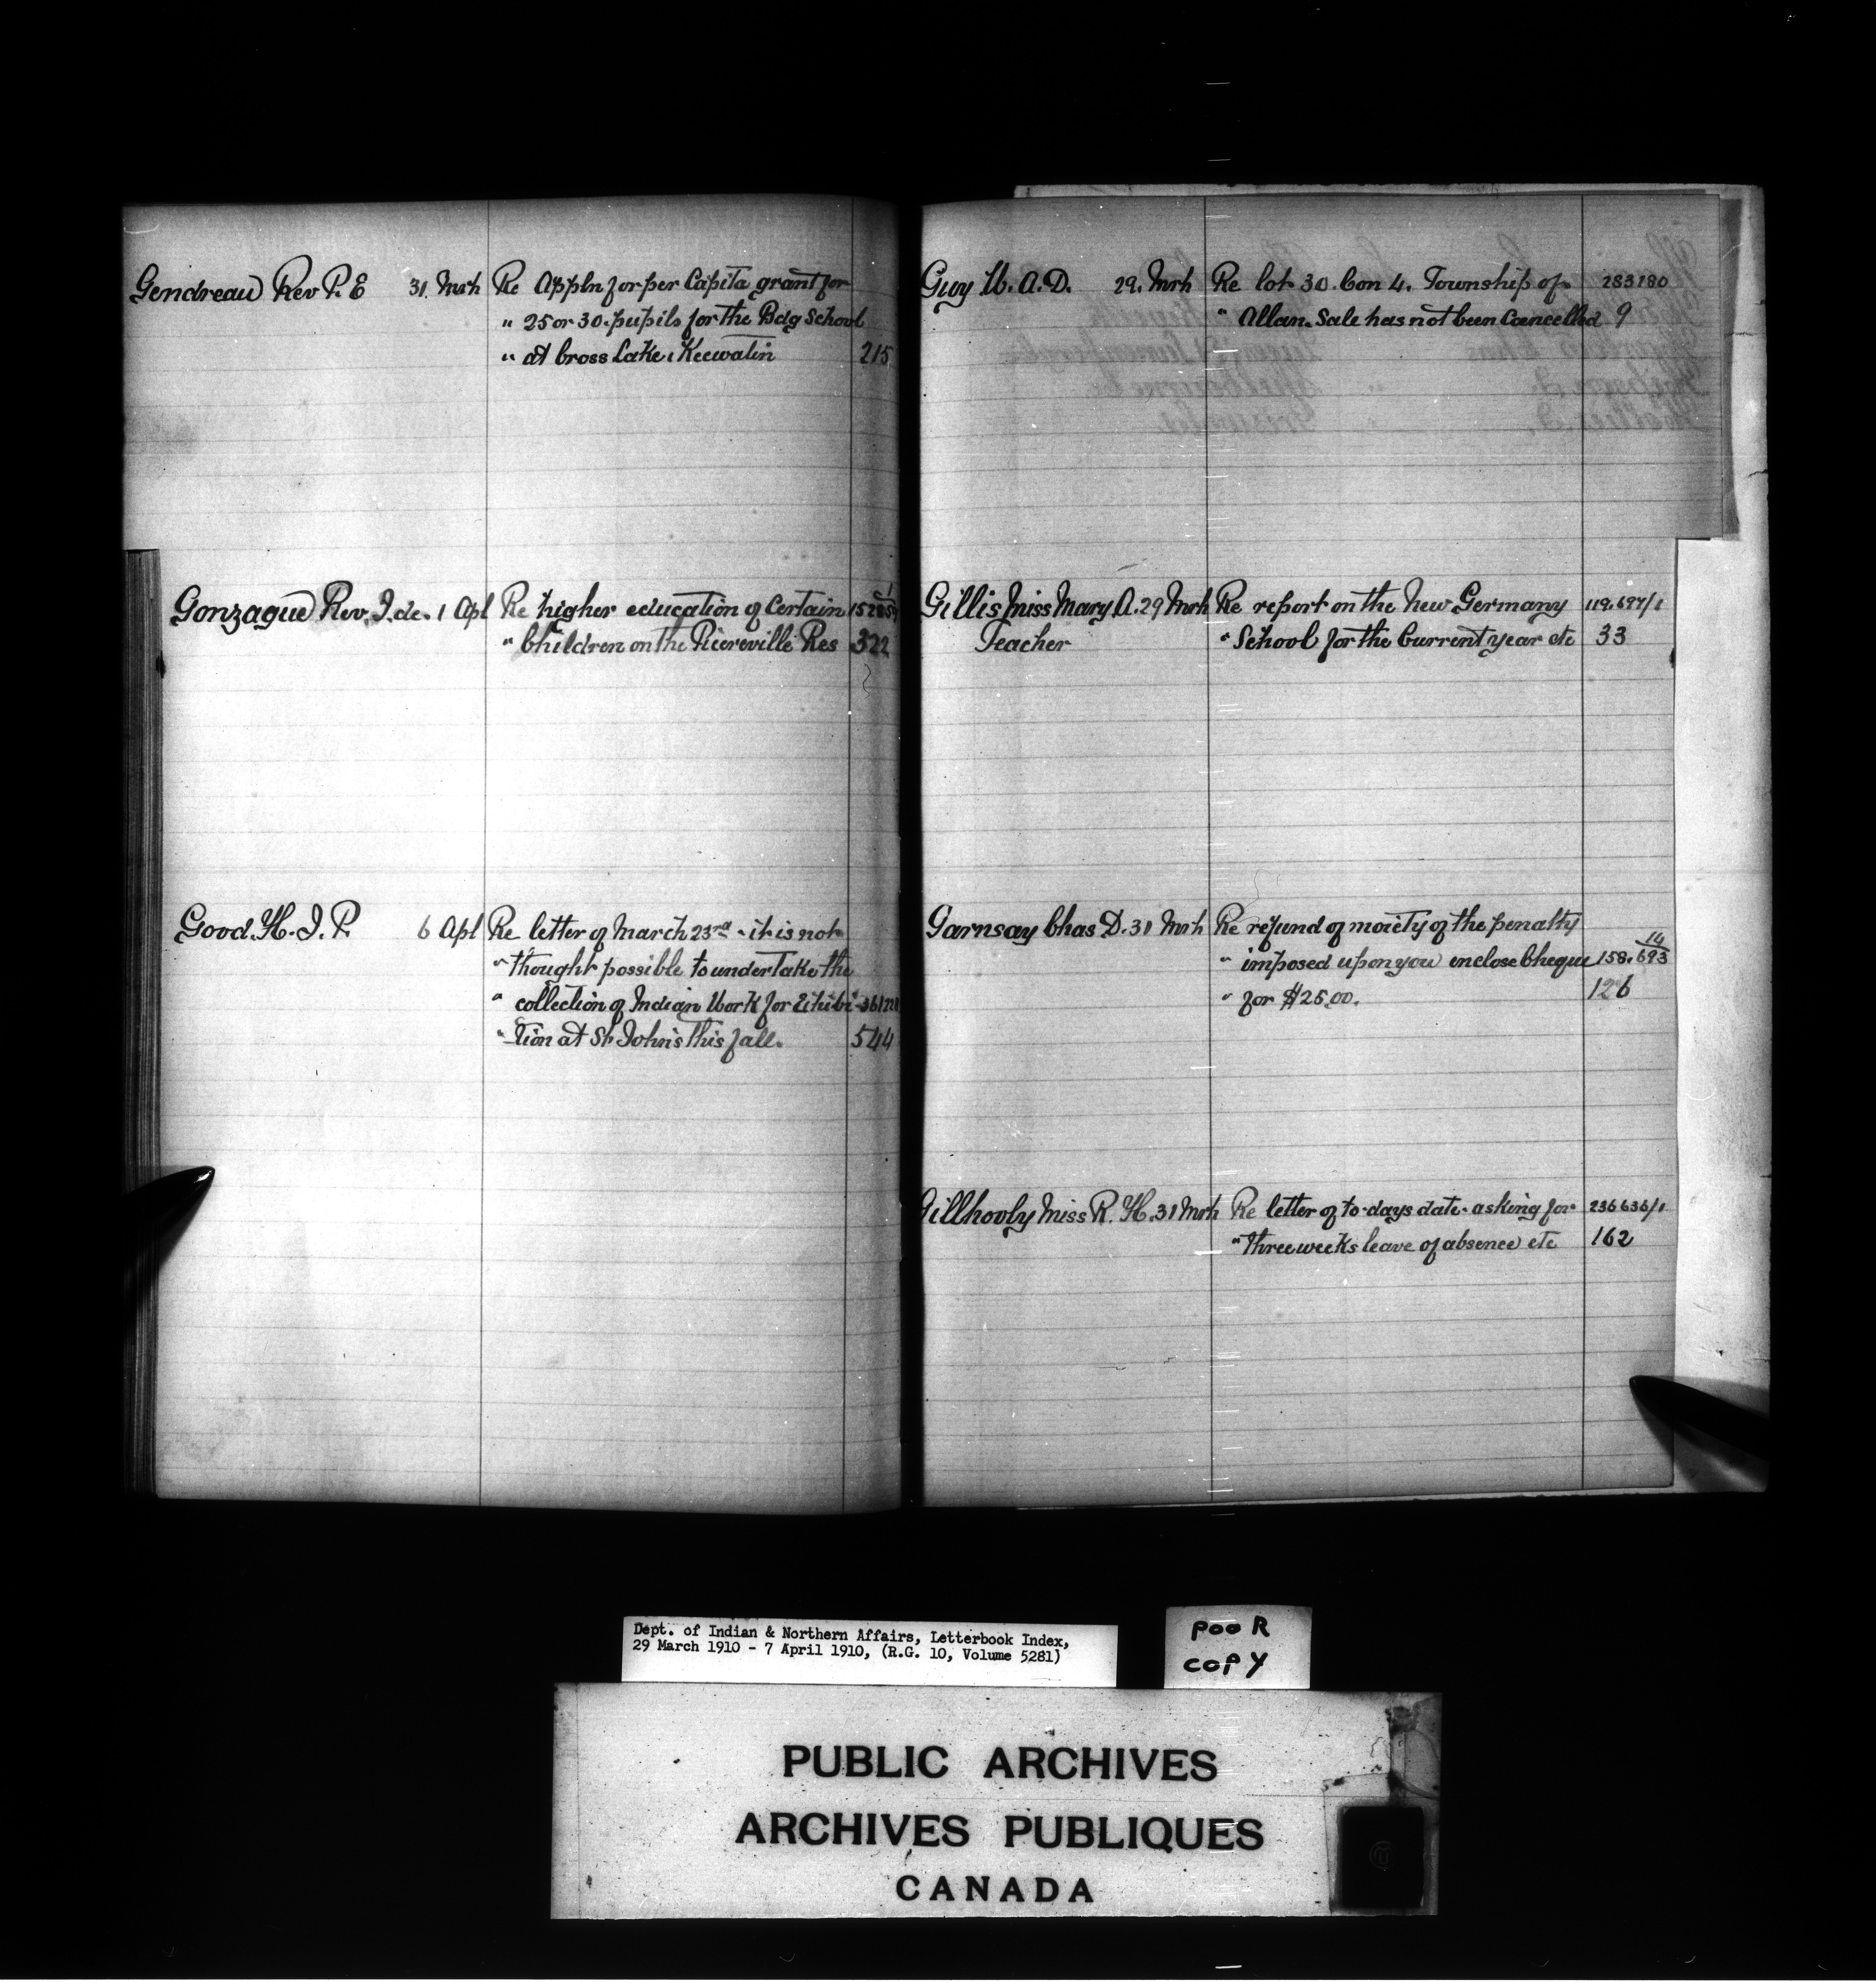 Gendreau Rev P. E 31. Mrh Re Appln for per Capita grant for
" 25 or 30. pupils for the Bdg School
" at Cross Lake, Keewatin 215
Gonzague Rev. I. de. 1 Apl Re higher education of Certain
" Children on the Pierreville Res 322
Good. H. J. P. 6 Apl Re letter of March 23rd - it is not
" thought possible to undertake the
" collection of Indian Work for Exhibi-
" -tion at St. John's this fall. 544
Guy W. A. D. 29. Mrh Re lot 30. Con 4. Township of 283180
" Allan. Sale has not been Cancelled 9
Gillis Miss Mary A. 29 Mrh Re report on the New Germany 119,697/1
Teacher " School for the Current year etc 33
Garnsay Chas D. 31 Mrh Re refund of moiety of the penalty
" imposed upon you enclose Cheque 158,693 14
" for $25.00. 126
Gillhooly Miss R. H. 31 Mrh Re letter of to-days date. asking for 236636/1
" three weeks leave of absence etc 162
Dept. of Indian & Northern Affairs, Letterbook Index,
29 March 1910 - 7 April 1910, (R.G. 10, Volume 5281)
POOR
COPY
PUBLIC ARCHIVES
ARCHIVES PUBLIQUES
CANADA